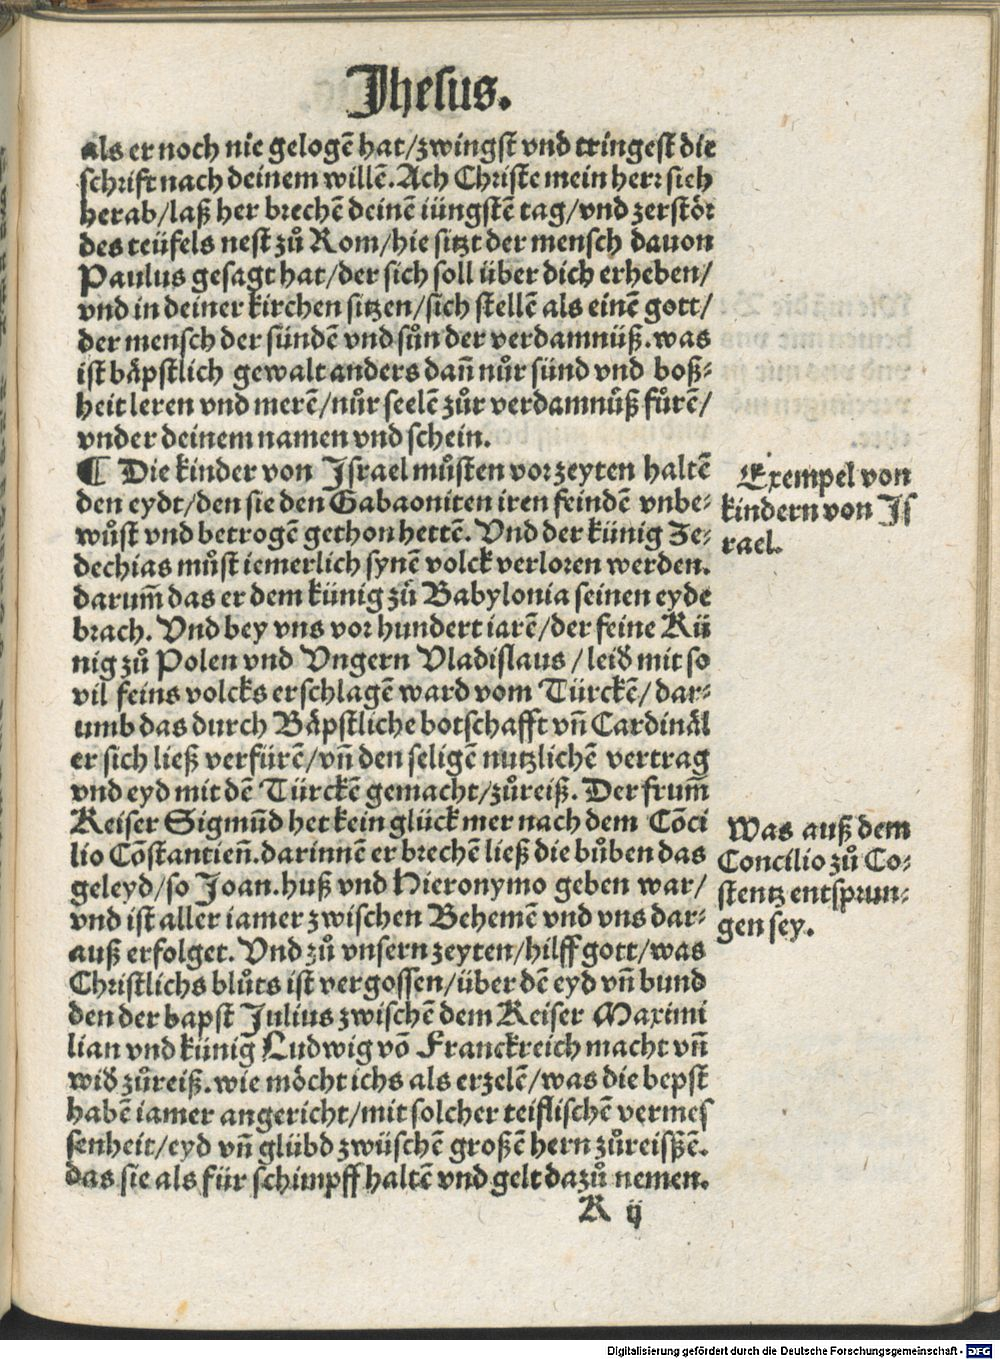 Jhesus.
als er noch nie gelogē hat/zwingst vnd tringest die
schrifft nach deinem willē.Ach Christe mein herr sich
herab/laß her brechē deinē iüngstē tag/vnd zerstör
des teüfels nest zů Rom/hie sitzt der mensch dauon
Paulus gesagt hat/der sich soll über dich erheben/
vnd in deiner kirchen sitzen/sich stellē als einē gott/
der mensch der sündē vnd sůn der verdamnüß.was
ist bäpstlich gewalt anders dañ nůr sünd vnd boß-
heit leren vnd merē/nůr seelē zůr verdamnůß fůrē/
vnder deinem namen vnd schein.
¶ Die kinder von Israel můsten vorzeyten haltē
den eydt/den sie den Gabaoniten iren feindē vnbe-
wůst vnd betrogē gethon hettē. Vnd der künig Ze-
dechias můst iemerlich synē volck verloren werden.
darum̄ das er dem künig zů Babylonia seinen eyde
brach. Vnd bey vns vor hundert iarē/der feine Kü
nig zů Polen vnd Vngern Vladislaus/leid mit so
vil feins volcks erschlagē ward vom Türckē/dar-
umb das durch Bäpstliche botschafft vñ Cardinäl
er sich ließ verfürē/vñ den seligē nutzlichē vertrag
vnd eyd mit dē Türckē gemacht/zůreiß. Der frum̄
Keiser Sigmūd het kein glück mer nach dem Cōci
lio Cōstantieñ.darinnē er brechē ließ die bůben das
geleyd/so Joan.huß vnd Hieronymo geben war/
vnd ist aller iamer zwischen Behemē vnd vns dar-
auß erfolget. Vnd zů vnsern zeyten/hilff gott/was
Christlichs blůts ist vergossen/über dē eyd vñ bund
den der bapst Julius zwischē dem Keiser Maximi
lian vnd künig Ludwig vō Franckreich macht vñ
wid zůreiß.wie möcht ichs als erzelē/was die bepst
habē iamer angericht/mit solcher teiflischē vermes
senheit/eyd vñ glübd zwüschē großē hern zůreissē.
das sie als für schimpff haltē vnd gelt dazů nemen.
K ij
Exempel von
kindern von Is
rael.
Was auß dem
Concilio zů Co-
stentz entsprun-
gen sey.
Digitalisierung gefördert durch die Deutsche Forschungsgemeinschaft - DFG